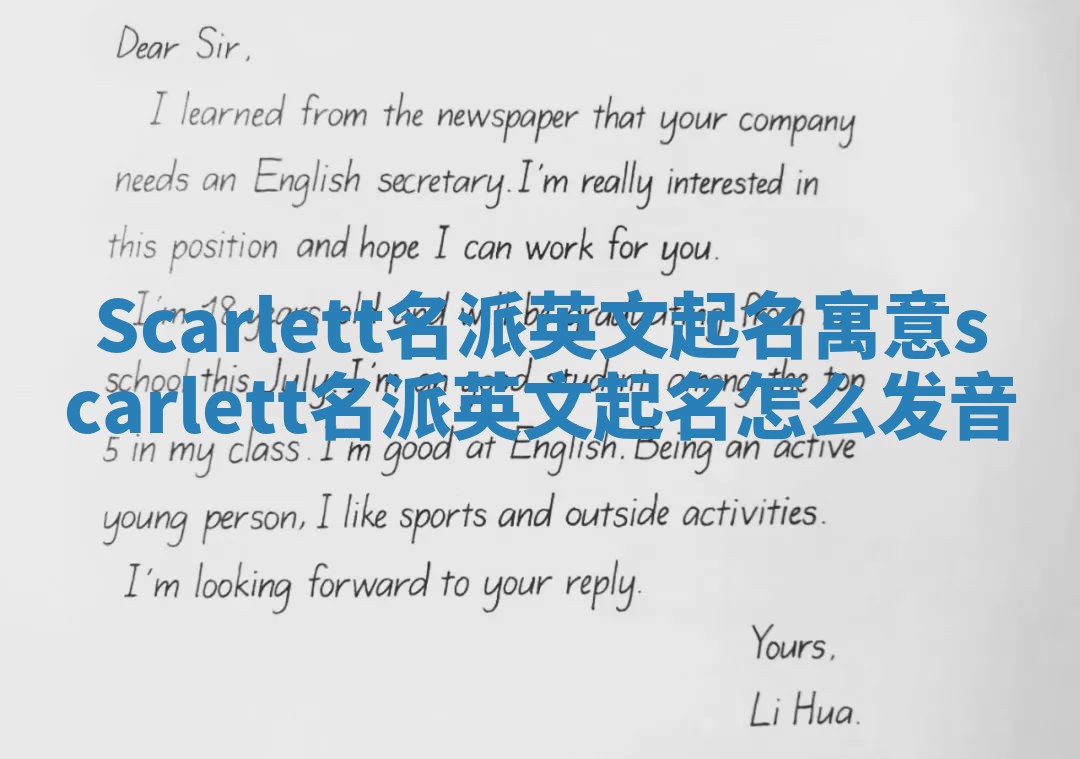 Dear Sir,
I learned from the newspaper that your company
needs an English secretary. I'm really interested in
this position and hope I can work for you.
I'm 18 years old and will be graduating from
Scarlett名派英文起名寓意s
school this July. I'm an good student among the top
carlett名派英文起名怎么发音
5 in my class. I'm good at English. Being an active
young person, I like sports and outside activities.
I'm looking forward to your reply.
Yours,
Li Hua.